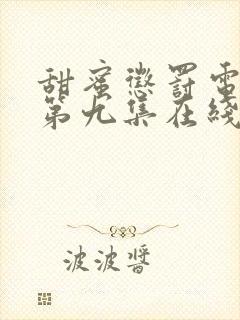 甜蜜懲罰電
第九集在綫
波波醬